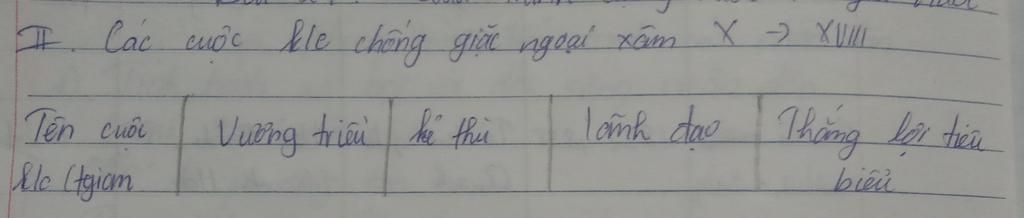 II. Các cuộc k/c chống giặc ngoại xâm X → XVIII
Tên cuộc Vương triều kẻ thù lãnh đạo Thắng lợi tiêu
k/c (tgian biểu